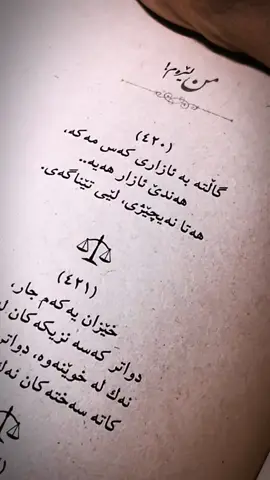 من لێرەم!
(٤٢٠)
گاڵتە بە ئازاری کەس مەکە،
هەندێ ئازار هەیە..
هەتا نەیچێژی، لێی تێناگەی.
(٤٢١)
خێزان یەکەم جار،
دواتر کەسە نزیکەکان
نەک لە خوێنەوە، دواتر
کاتە سەختەکان